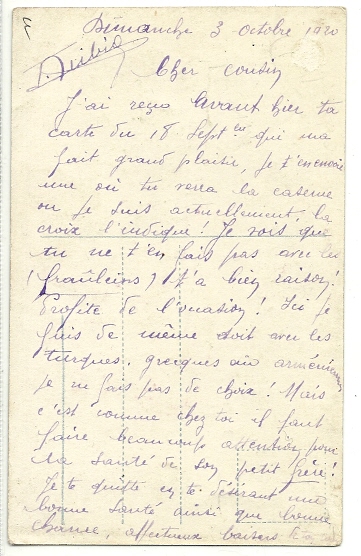 Dimanche 3 octobre 1920
Cher cousin
J'ai reçu avant hier ta
carte du 18 Septbre qui m'a
fait grand plaisir, je t'en envoie
une où tu verra la caserne
ou je suis actuellement, la
croix l'indique! Je vois que
tu ne t'en fais pas avec les
(fraüleins) t'a bien raison!
Profite de l'ocasion! Ici je
fais de même soit avec les
turques, grecques ou arméniennes
je ne fais pas de choix! Mais
c'est comme chez toi il faut
faire beaucoup attention pour
la santé de son petit frère!
Je te quitte en te désirant une
bonne santé ainsi que bonne
chance, affectueux baisers